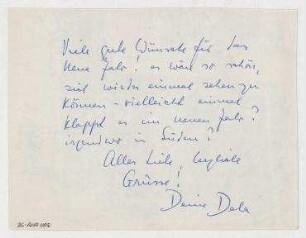 Viele gute Wünsche für das
Neue Jahr! es wäre so schön,
sich wieder einmal sehen zu
können - vielleicht einmal
klappt es im neuen Jahr?
irgendwo im Süden?
Alles Liebe, herzliche
Grüsse!
Deine